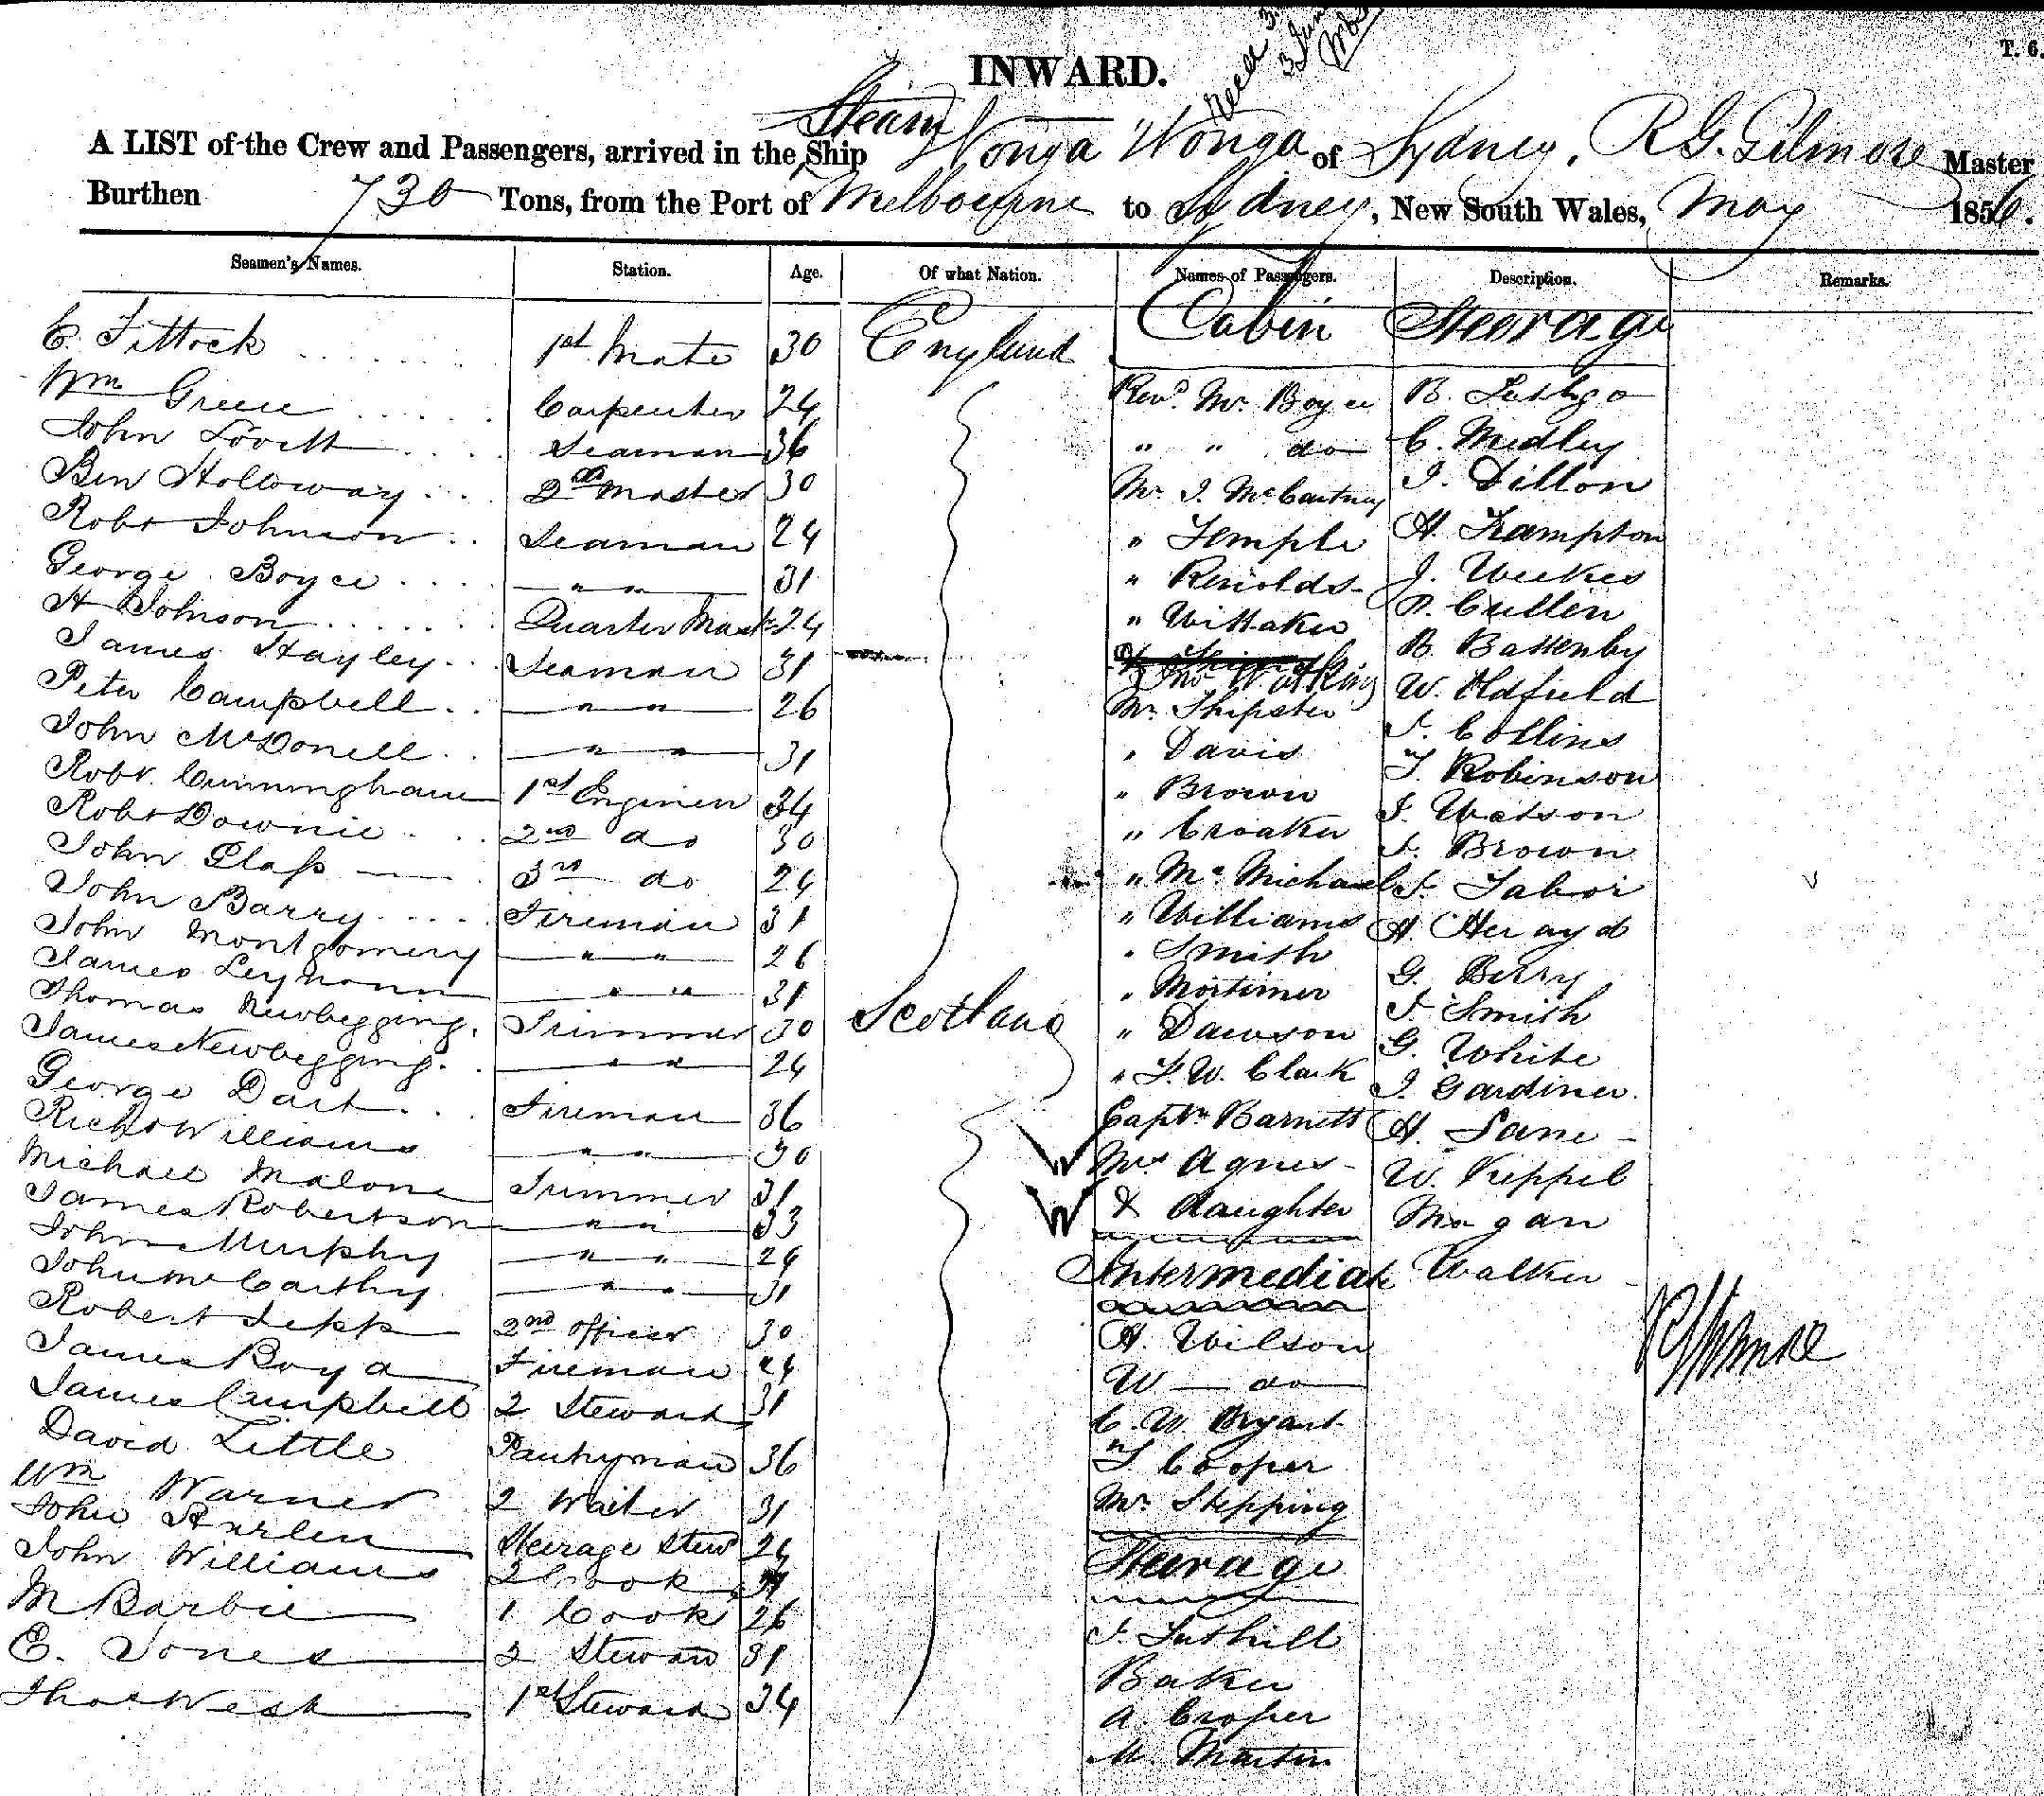 T. 6.
INWARD.
Steam
A LIST of the Crew and Passengers, arrived in the Ship Wonga Wonga of Sydney, R G. Gilmore Master
Burthen 730 Tons, from the Port of Melbourne to Sydney, New South Wales, May 1856.
Seamen's Names. Station. Age. Of what Nation. Names of Passengers. Description. Remarks.
Cabin Steerage
C. Fittock 1st Mate 30 England
Wm Greene Carpenter 24 Revd. Mr. Boyce B.
John Lovett Seaman 36 " " do C. Medley
Ben Holloway 2nd Master 30 Mr J. McCartney J. Dillon
Robt Johnson Seaman 24 " Temple H. Frampton
George Boyce " " 31 " Renolds J. Weekes
H Johnson Quarter Mast 24 " Wittaker P. Cullen
James Hayley Seaman 31 Watkins B Battenby
Peter Campbell " " 26 Mr. Shipster W. Oldfield
John McDonell " " 31 " Davis J. Collins
Robt. Cunningham 1st Enginer 34 " Brown T. Robinson
Robt Downie 2nd do 30 " Croaker J. Watson
John Glass 3rd do 24 " McMichael J. Brown
John Barry Fireman 31 " Williams J. Tabor
John Montgomery " " 26 " Smith H.
James " " 31 " Mortimer G. Berry
Thomas Newbegging Trimmer 30 Scotland " Dawson J. Smith
James Newbegging " " 24 " F. W. Clark G. White
George Dart Fireman 36 Captn Barnett J. Gardiner
Richd Williams " " 30 Mrs Agnes H. Lane
Michael Malone Trimmer 31 & daughter W. Keppel
James Robertson " " 33 Magan
John Murphy " " 24 Intermediate Walker
John McCarthy " " 31
Robert Jepp 2nd officer 30 H. Wilson
James Boyd Fireman 24 W do
James Campbell 2 Steward 31 C. W. Bryant
David Little Pantryman 36 T Cooper
Wm Warner 2 Waiter 31 Mr Stepping
John Steerage Stew 24 Steerage
John Williams 2 Cook 31
M Barbie 1 Cook 26 J. Tuthill
E. Jones 2 Steward 31 Baker
Thos West 1st Steward 34 A. Croper
M. Martin